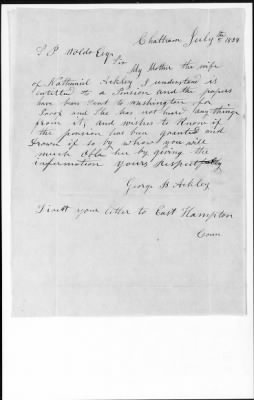 Chatham July 1839
L P Waldo Esqr
Sir My Mother the wife
of Nathaniel Ackley I understand is
entitled to a Pension and the papers
have been sent to Washington for
Proof and She has not heard anything
from it, and wishes to Know if
the pension has been granted and
drawn if so by whom you will
much oblige her by giving the
information yours Respectfully
George B Ackley
Direct your letter to East Hampton
Conn